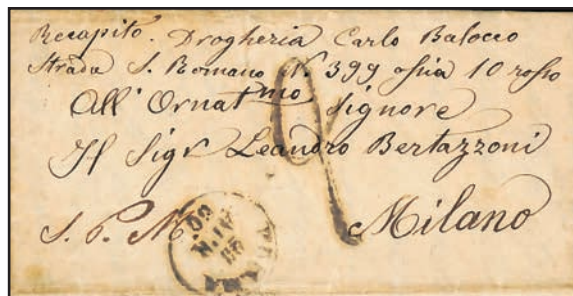 Recapito. Drogheria Carlo Balocco
Strada S. Romano N. 399 ossia 10 rosso
All' Ornat.mo Signore
Il Sigr Leandro Bertazzoni
Milano
S. P. M.
2